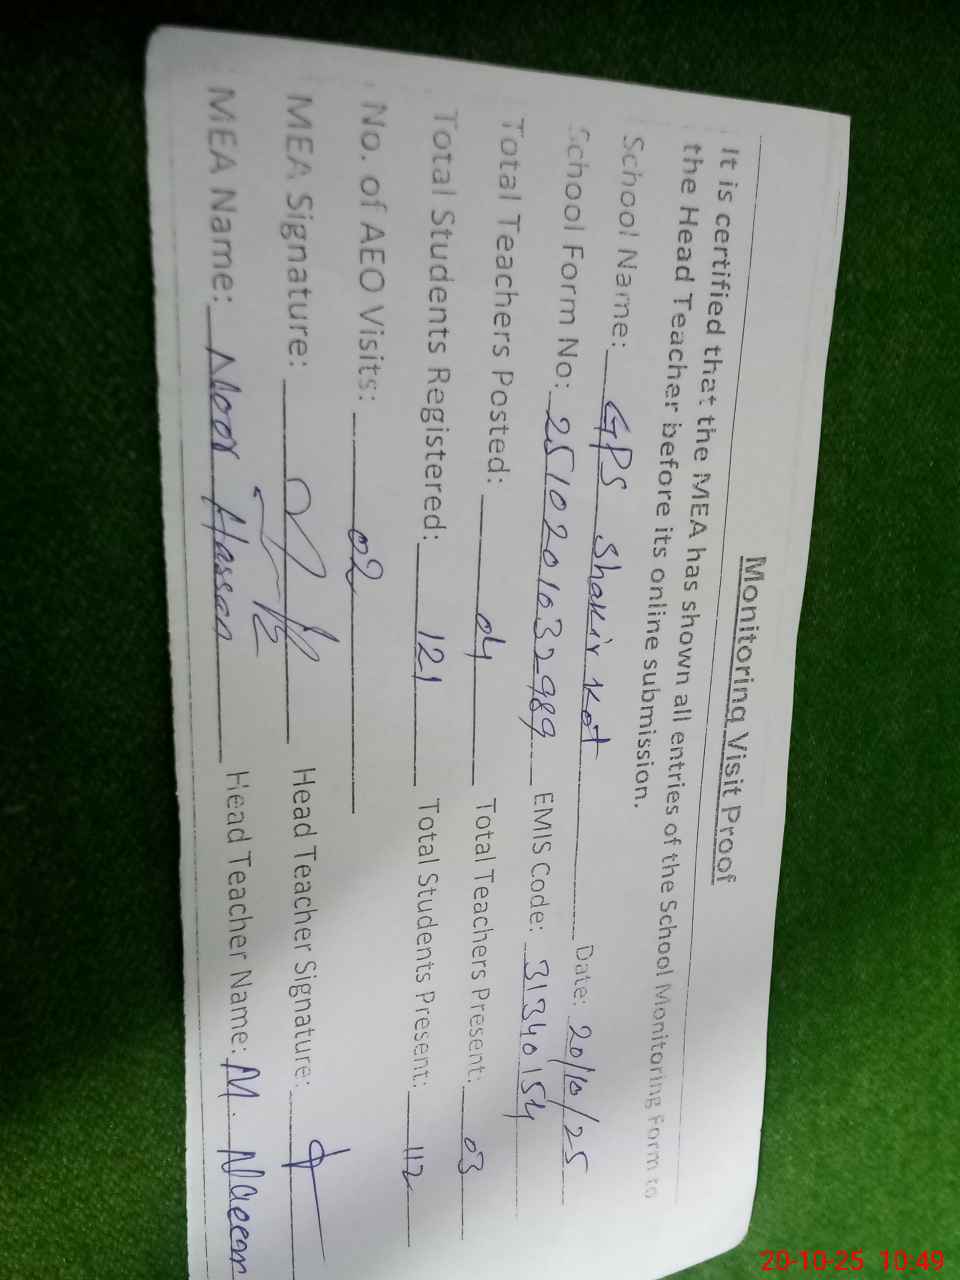 Monitoring Visit Proof
It is certified that the MEA has shown all entries of the School Monitoring Form to
the Head Teacher before its online submission.
School Name: GPS Shakir Kot Date: 20/10/25
School Form No: 2510201032989 EMIS Code: 31340154
Total Teachers Posted: 04 Total Teachers Present: 03
Total Students Registered: 121 Total Students Present: 112
No. of AEO Visits: 02
MEA Signature: Head Teacher Signature:
MEA Name: Noor Hassan Head Teacher Name: M. Naeem
20-10-25 10:49